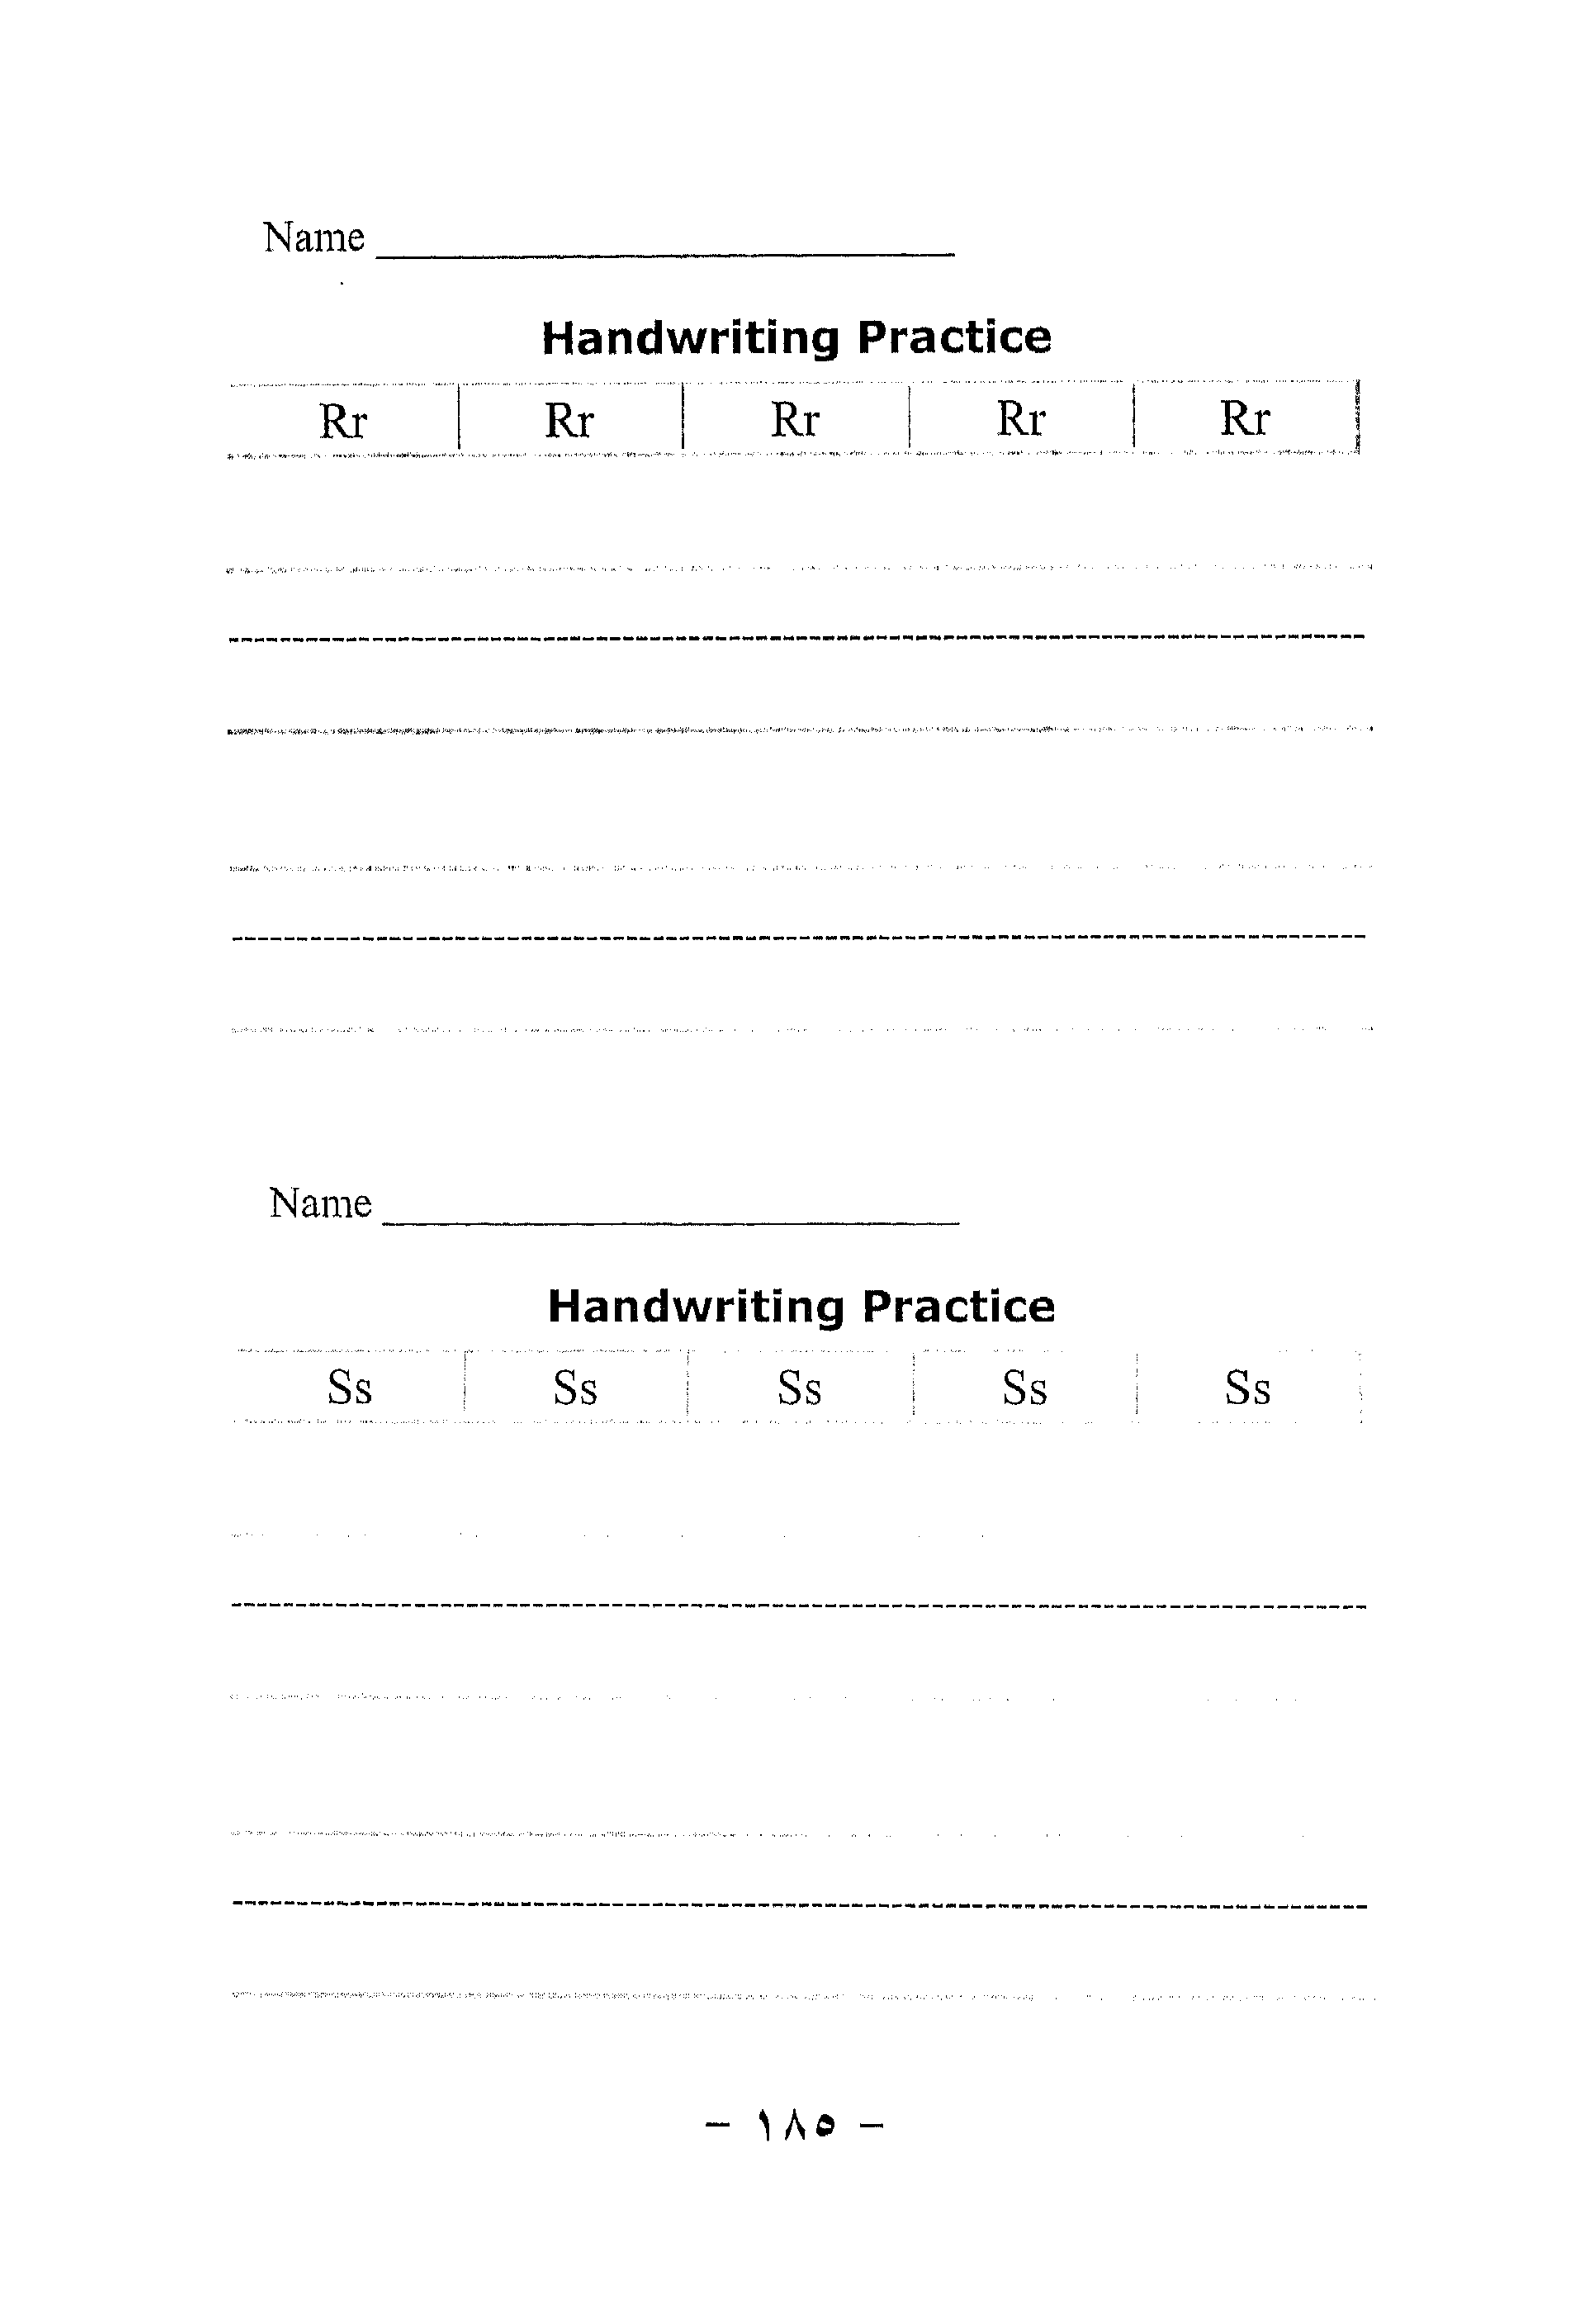 Name
Handwriting Practice
Rr Rr Rr Rr Rr
Name
Handwriting Practice
Ss Ss Ss Ss Ss
- ١٨٥ -